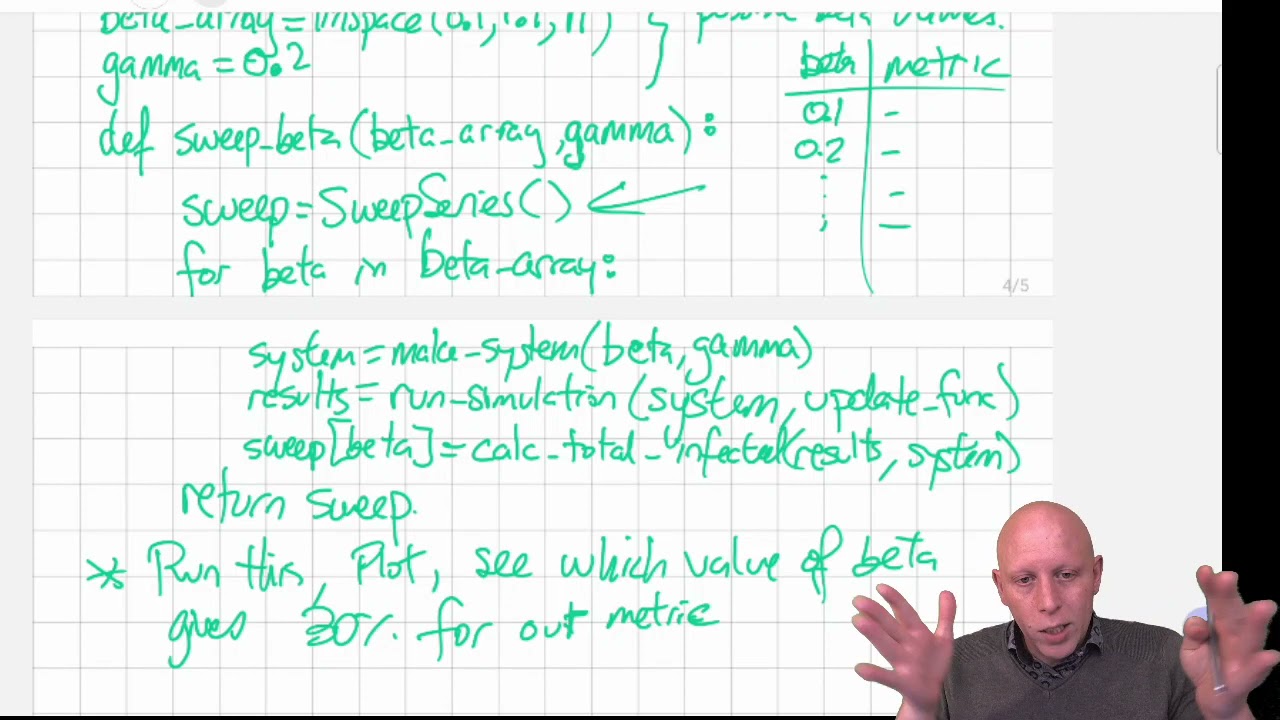 beta_array = linspace(0.1, 1.1, 11) } possible beta values.
gamma = 0.2
beta | metric
0.1 -
0.2 -
-
-
def sweep_beta(beta_array, gamma):
sweep = SweepSeries()
for beta in beta_array:
4/5
system = make_system(beta, gamma)
results = run_simulation(system, update_func)
sweep[beta] = calc_total_infected(results, system)
return sweep.
* Run this, Plot, see which value of beta
gives 30% for out metric